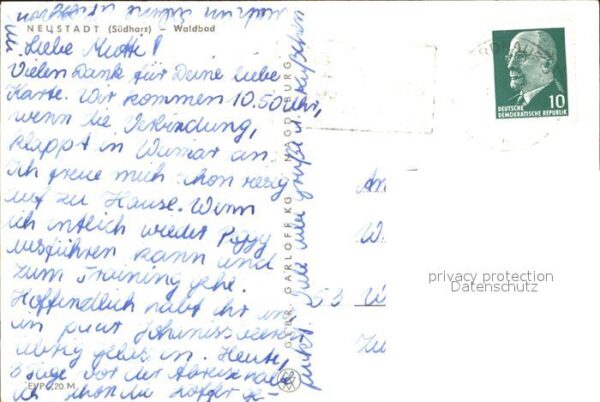 NEUSTADT (Südharz) - Waldbad
Liebe Mutti!
Vielen Dank für Deine liebe
Karte. Wir kommen 10.50 Uhr,
wenn die Verbindung,
klappt in Weimar an.
Ich freue mich schon riesig
auf zu Hause. Wenn
ich endlich wieder Peggy
ausführen kann und
zum Training gehe.
Hoffendlich habt ihr
ein paar Johannisbeeren
übrig gelas en. Heute,
8 Tage vor der Abreise habe
ich schon die Koffer ge-
packt. Viele liebe Grüße u. Küßchen
EVP 0,20 M
GEBR. GARLOFF KG MAGDEBURG
10
DEUTSCHE
DEMOKRATISCHE REPUBLIK
An
W.
53
privacy protection
Datenschutz